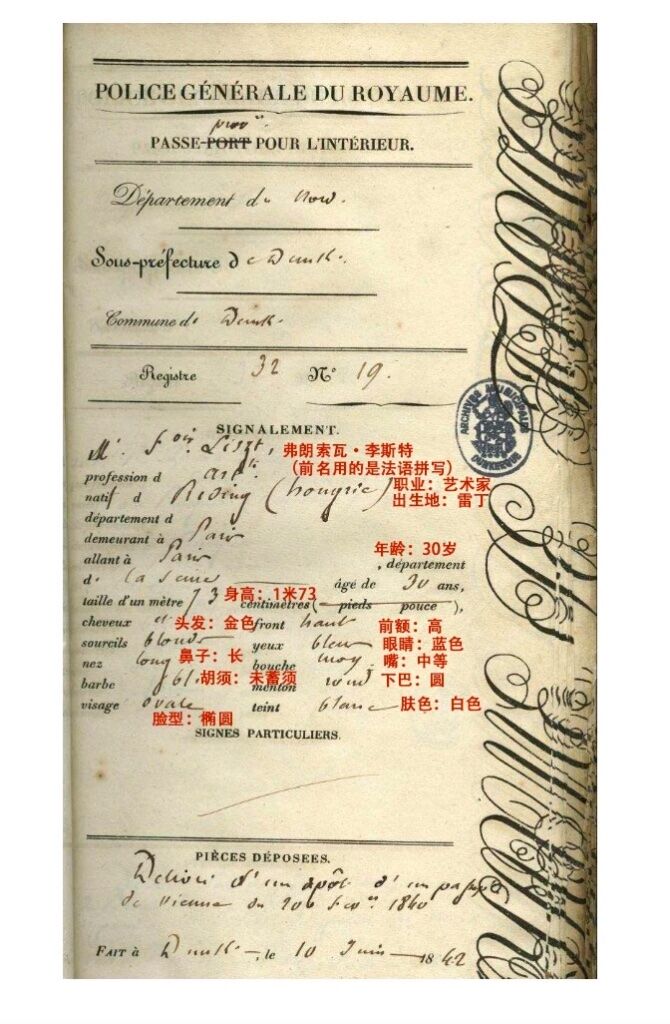 POLICE GÉNÉRALE DU ROYAUME.
PASSE-PORT POUR L'INTÉRIEUR.
Département d
Sous-préfecture d e Dunk.
Commune de Dunk.
Registre 32 N° 19.
SIGNALEMENT.
M. F ois Liszt, 弗朗索瓦·李斯特
(前名用的是法语拼写)
profession d 职业：艺术家
natif d Reding (hongrie) 出生地：雷丁
département d
demeurant à Paris
allant à Paris 年龄：30岁
, département
de la seine âgé de 30 ans,
taille d'un mètre 73 身高：1米73 centimètres ( pieds pouce ),
cheveux 头发：金色 front haut 前额：高
sourcils blonds yeux bleu 眼睛：蓝色
nez long 鼻子：长 bouche moy. 嘴：中等
barbe 胡须：未蓄须 menton rond 下巴：圆
visage ovale teint blanc 肤色：白色
脸型：椭圆
SIGNES PARTICULIERS.
PIÈCES DÉPOSEES.
d'un d'un
de Vienne du 20 1840
FAIT à Dunk, le 10 Juin 1842
ARCHIVES MUNICIPALES
DUNKERQUE